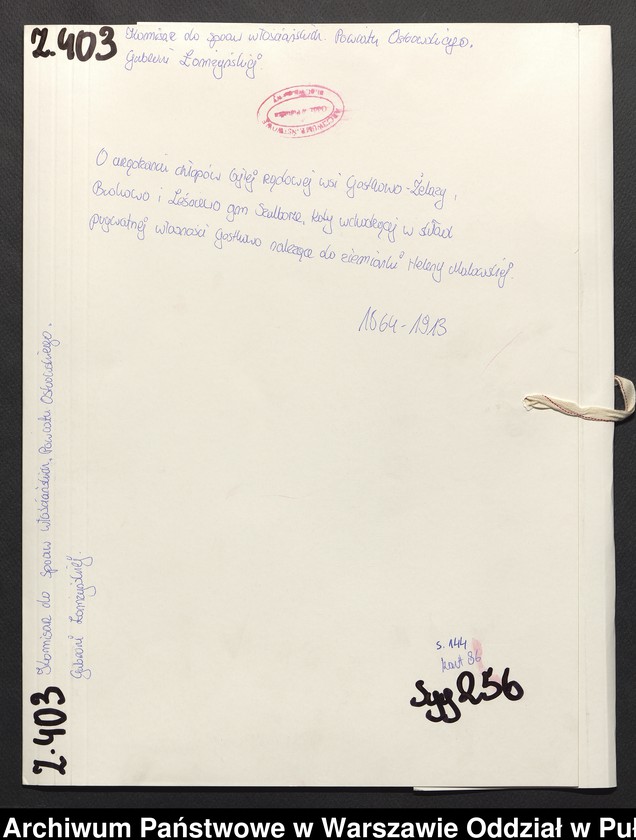 Z.403
Komisarz do spraw włościańskich. Powiatu Ostrowskiego.
Guberni Łomżyńskiej
O urządzeniu chłopów byłej rządowej wsi Gostkowo-Żelazy,
i gm Szulborze, Koty wchodzącej w skład
prywatnej własności Gostkowo należące do ziemianki Heleny
1864-1913
s. 144
kart 86
Syg 256
Z.403
Komisarz do spraw włościańskich. Powiatu Ostrowskiego.
Guberni Łomżyńskiej.
Archiwum Państwowe w Warszawie Oddział w Puł